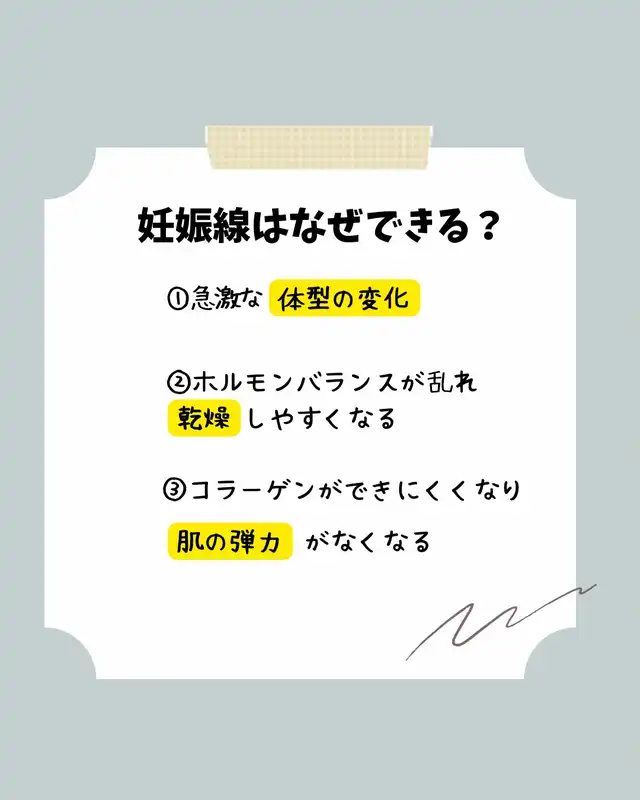 妊娠線はなぜできる？
①急激な 体型の変化
②ホルモンバランスが乱れ
乾燥 しやすくなる
③コラーゲンができにくくなり
肌の弾力 がなくなる